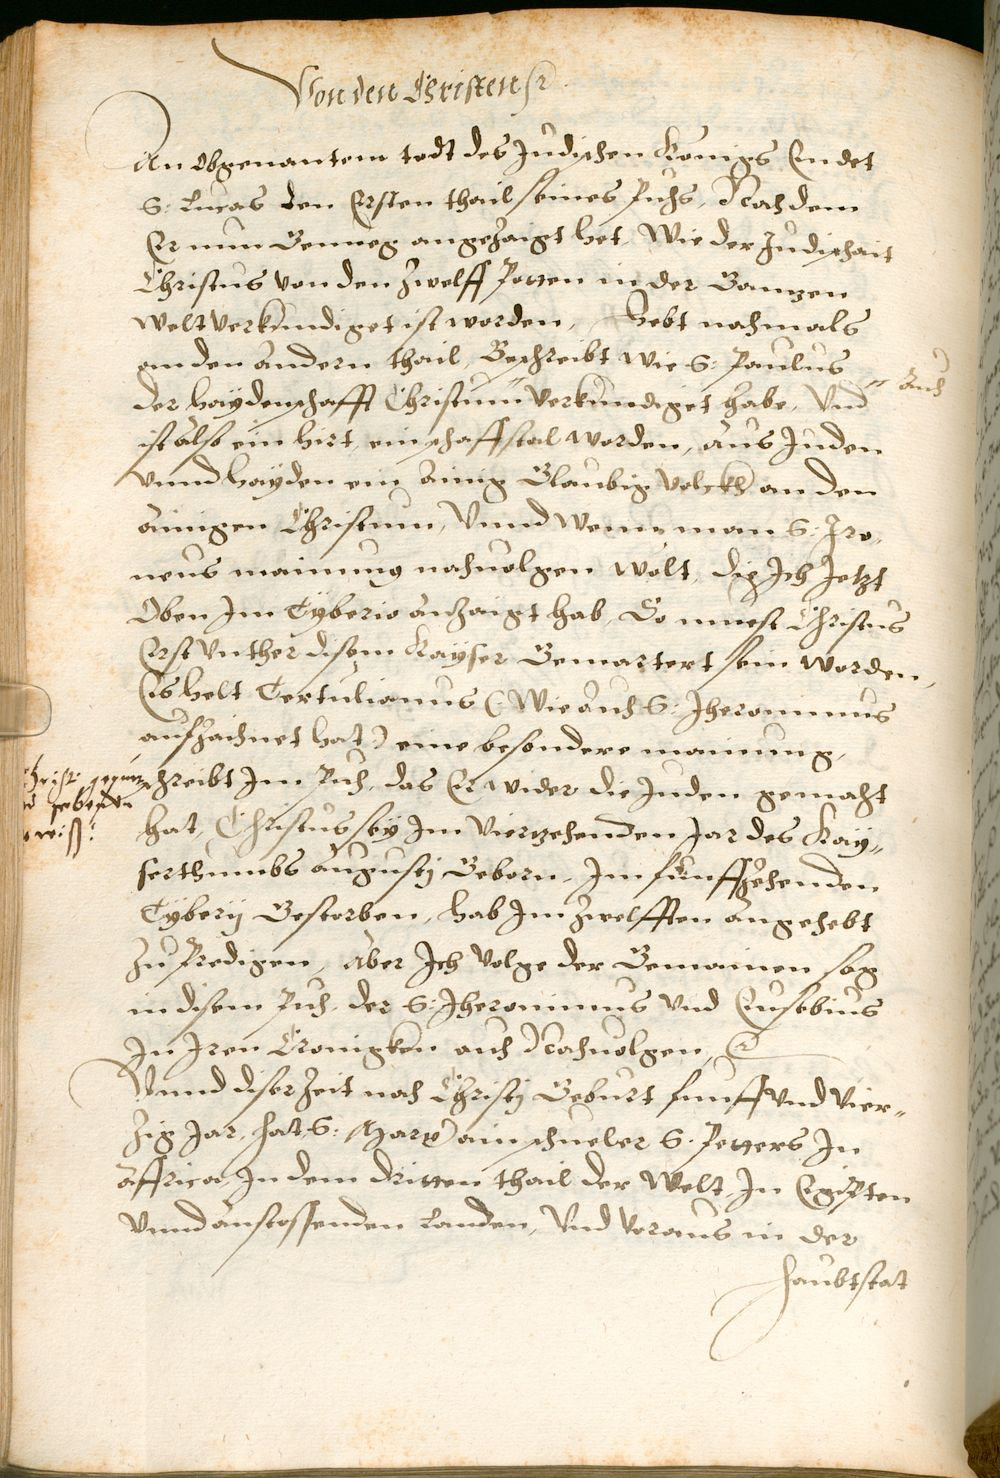 Von den Christen ꝛc.
An obgenantem todt des Judischen Königs Endet
S: Lucas den Ersten thail seines Puchs, Nachdem
Er nun Genueg angezaigt het, Wie der Judischait
Christus von den Zwelff Potten in der Gantzen
Welt verkhundiget ist worden, Hebt nachmals
an den andern thail, Beschreibt wie S: Paulus
der haydenschafft Christum " verkhundiget habe, Und
" auch
ist also ein hirt, ein schaffstal worden, aus Juden
unnd hayden ein ainig Glaubig Volckh an den
ainigen Christum, Unnd wenn man S: Ire„
neus mainung nachvolgen wolt, die Ich Jetzt
Oben Im Tyberio anzaigt hab, So muest Christus
Erst unther disem Kayser Gemartert sein worden,
Es helt Tertulianus (Wie auch S: Iheronimus
aufzaichnet hat) eine besondere mainung,
schreibt Im Puch, das Er wider die Juden gemacht
Christi
hat, Christus sey Im Vierzehenden Jar des Kay„
serthumbs Augustj Geborn, Im funffzehenden
Tyberij Gestorben, hab Im Zwelfften angehebt
zu Predigen, Aber Ich volge der Gemainen sag
in disem Puch, der S: Iheronimus und Eusebius
In Iren Cronigken auch Nachvolgen, ꝛc
Unnd diser Zeit nach Christj Geburt funff und vier„
zig Jar, hat S: Marx ain schueler S: Petters In
Affrica In dem dritten thail der Welt, In Egipten
unnd anstossenden Landen, Und voraus in der
haubtstat